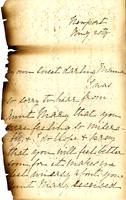 Newport
Aug 20th
own sweet darling Mama
I was
so sorry to hear from
Aunt Mary that you
are feeling so misera-
ble. I do hope & pray
that you will feel better
soon for it makes me
feel about you
Aunt Mary received